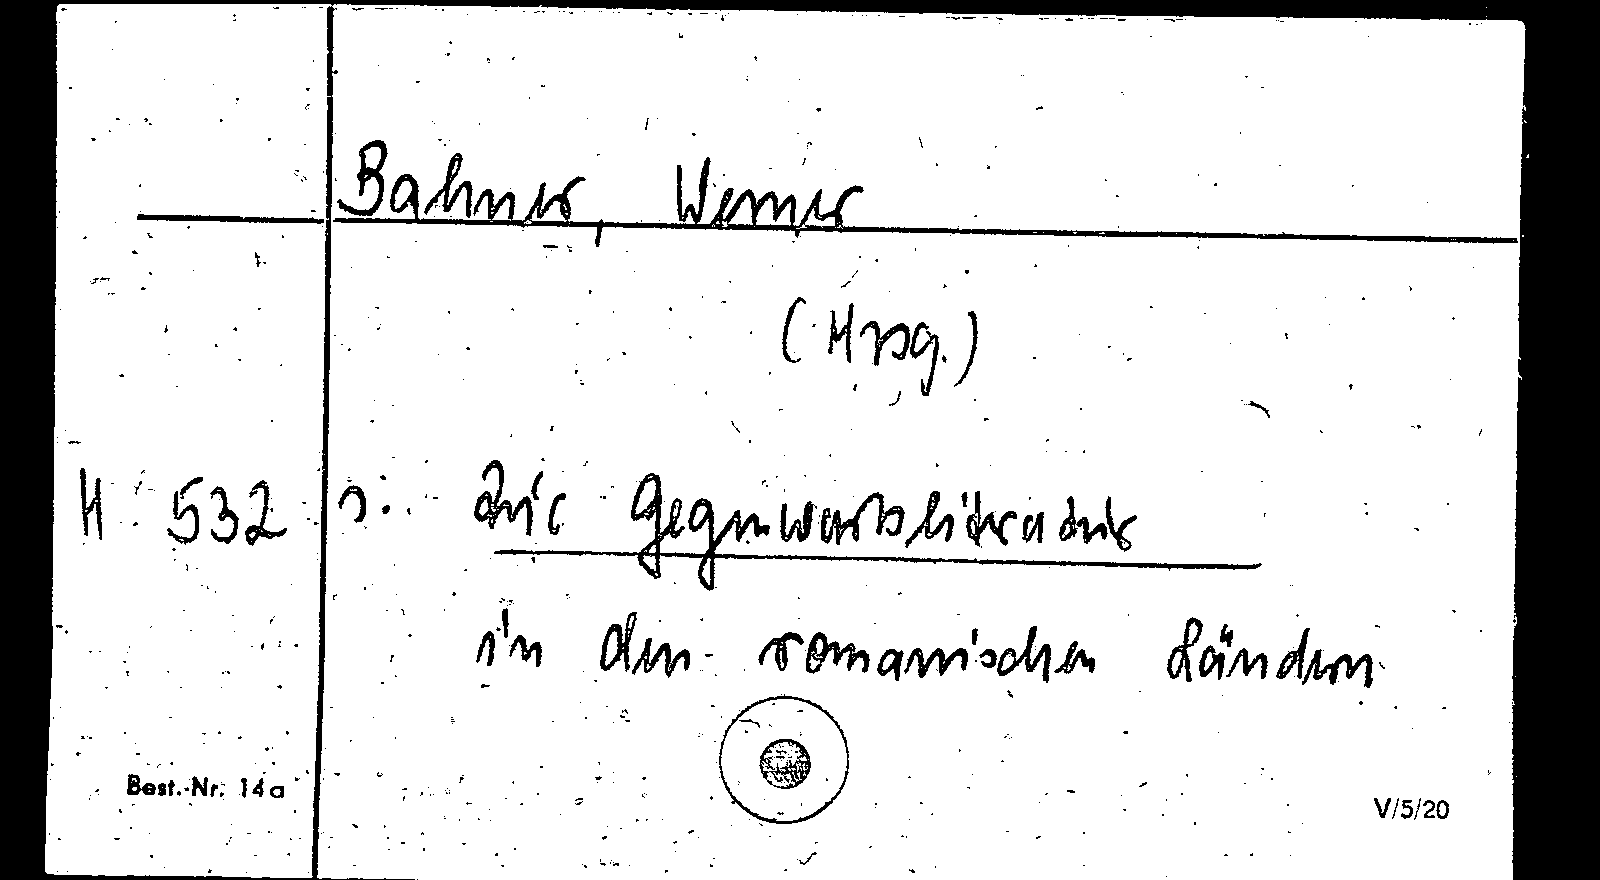 Bahner, Werner
(Hrsg.)
H 532 s: Die Gegenwartsliteratur
in den romanischen Ländern
Best.-Nr. 14a
V/5/20